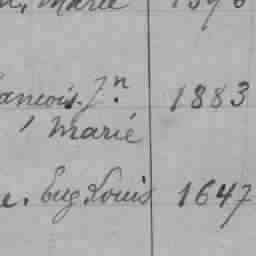 Marie 1396
ancois. Jn. 1883
Marié
e. Eug Louis 1647